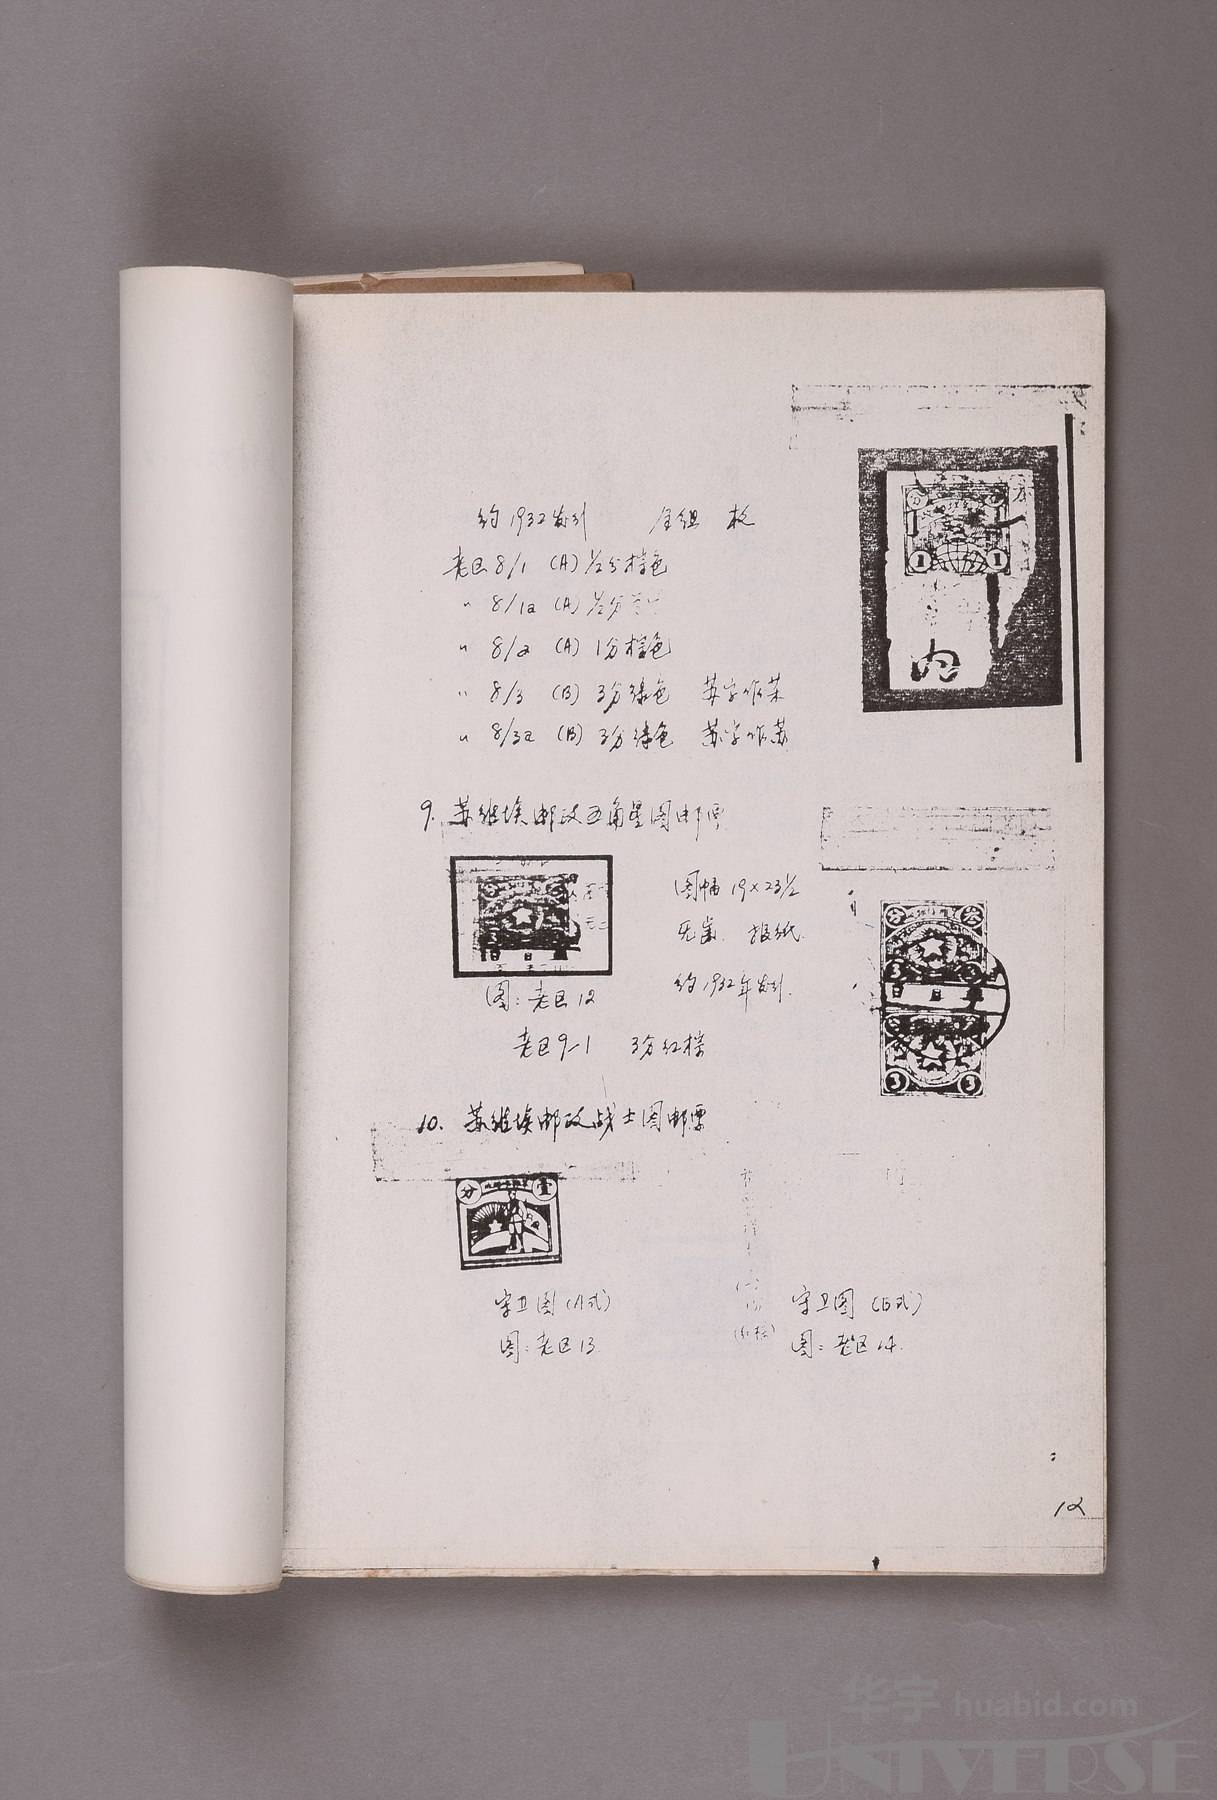 约1932发行 全组 枚
老区8/1 (A) ½分棕色
〃 8/1a (A) ½分
〃 8/2 (A) 1分棕色
〃 8/3 (B) 3分绿色 苏字作
〃 8/3a (B) 3分绿色 苏字作苏
9. 苏维埃邮政五角星图邮票
图幅 19×23½
无齿. 报纸.
约1932年发行.
图：老区12
老区9-1 3分红棕
10. 苏维埃邮政战士图邮票
守卫图(A式)
图：老区13.
(红棕)
守卫图 (B式)
图：老区14.
1 1
内
分 叁
3 3
3 3
分 壹
12
华宇 huabid.com
UNIVERSE